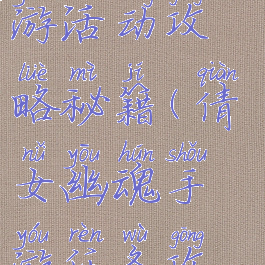 游活动攻
lüè mì jí qiàn
略秘籍(倩
nǚ yōu hún shǒu
女幽魂手
yóu rèn wù gōng